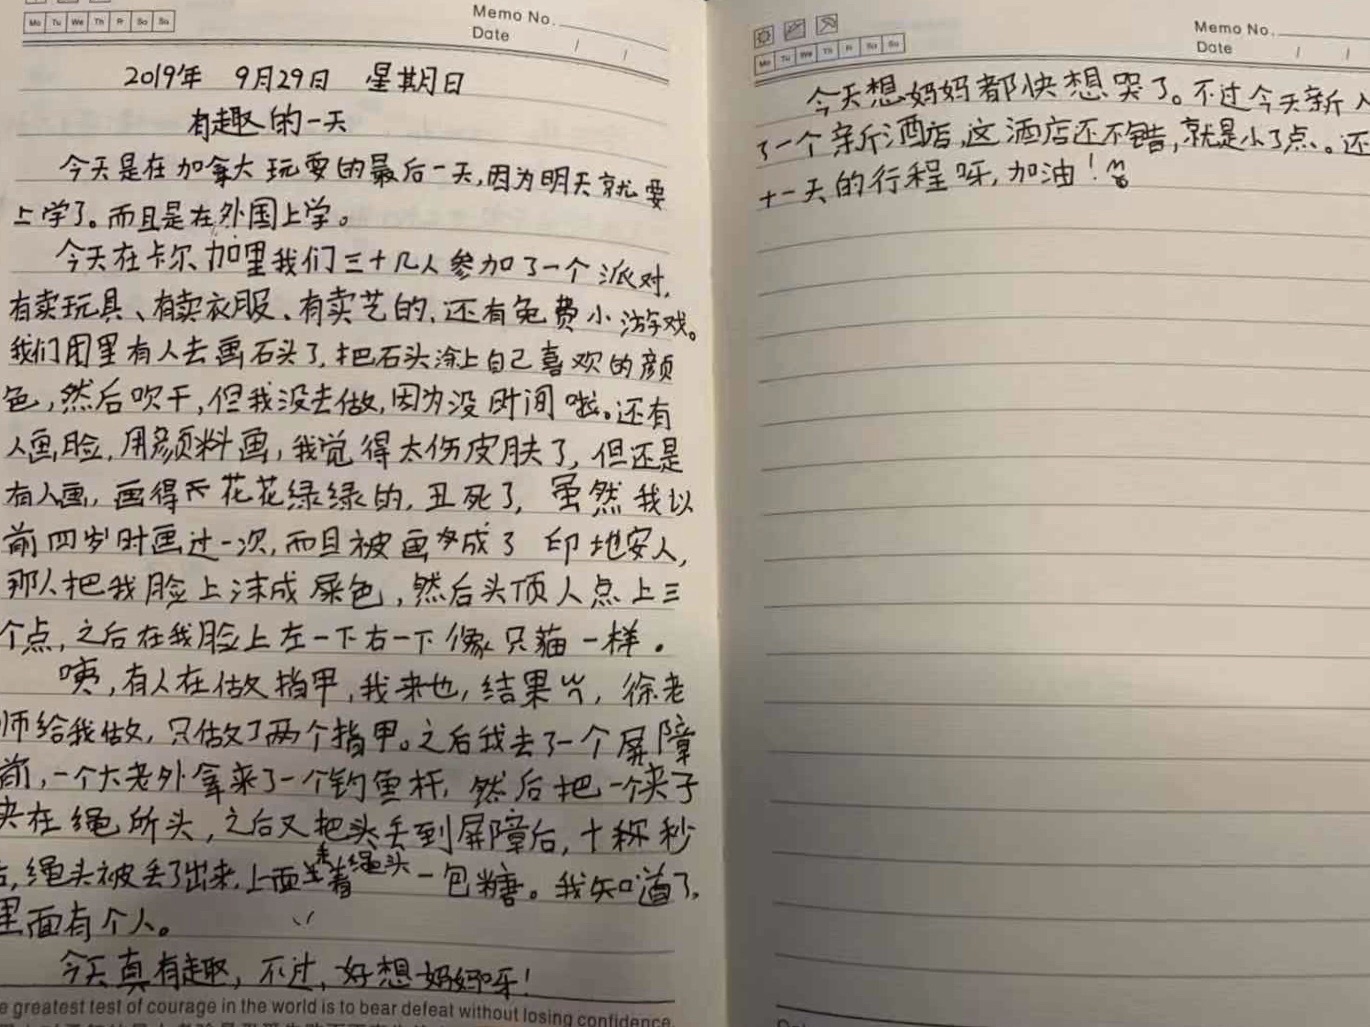 Mo Tu We Th Fr Sa Su
Memo No.
Date / /
2019年 9月29日 星期日
有趣的一天
今天是在加拿大玩耍的最后一天,因为明天就要
上学了。而且是在外国上学。
今天在卡尔加里我们三十几人参加了一个派对,
有卖玩具、有卖衣服、有卖艺的、还有免费小游戏。
我们团里有人去画石头了,把石头涂上自己喜欢的颜
色,然后吹干,但我没去做,因为没时间啦。还有
人画脸,用颜料画,我觉得太伤皮肤了,但还是
有人画,画得花花绿绿的,丑死了,虽然我以
前四岁时画过一次,而且被画成了印地安人,
那人把我脸上沫成屎色,然后头顶人点上三
个点,之后在我脸上左一下右一下像只猫一样。
咦,有人在做指甲,我来也,结果,徐老
师给我做,只做了两个指甲。之后我去了一个屏障
前,一个大老外拿来了一个钓鱼杆,然后把一个夹子
夹在绳所头,之后又把头丢到屏障后,十称秒
后,绳头被丢了出来,上面着绳头一包糖。我知道了,
里面有个人。
今天真有趣,不过,好想妈妈呀!
e greatest test of courage in the world is to bear defeat without losing confidence.
Mo Tu We Th Fr Sa Su
Memo No.
Date / /
今天想妈妈都快想哭了。不过今天新入
了一个新酒店,这酒店还不错,就是小了点。还
十一天的行程呀,加油!